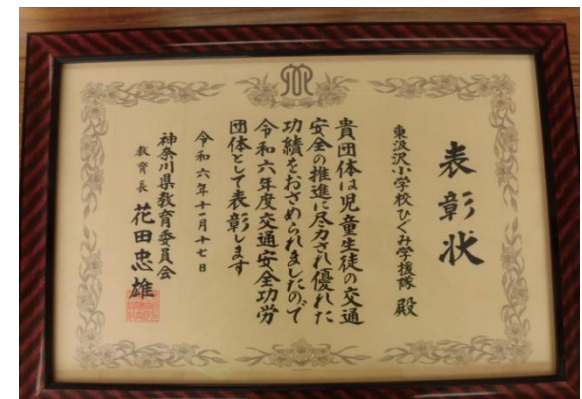 表彰状
東汲沢小学校ひぐみ学援隊 殿
貴団体は児童生徒の交通
安全の推進に尽力され優れた
功績をおさめられましたので
令和六年度交通安全功労
団体として表彰します
令和六年十一月十七日
神奈川県教育委員会
教育長 花田忠雄